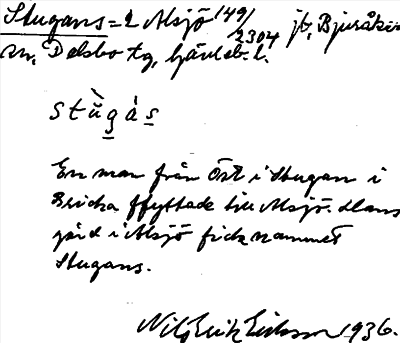 Stugans = 2 Alsjö 1 49/2304 jb, Bjuråkers
sn, Delsbo tg, Gävleb. l.
stùgàs
En man från Öst i Stugan i
Bricka flyttade till Alsjö. Hans
gård i Alsjö fick namnet
Stugans.
Nils Erik Eriksson 1936.